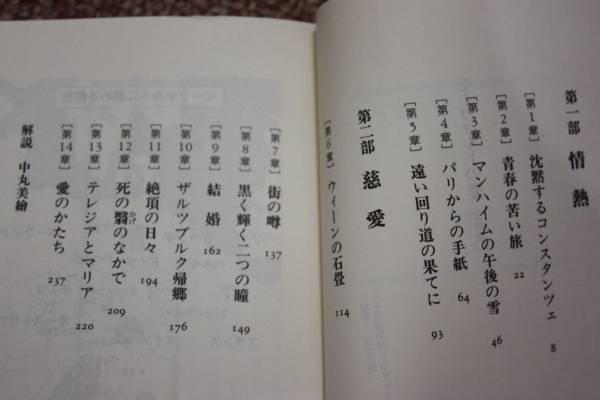 第一部 情熱
[第1章] 沈黙するコンスタンツェ 8
[第2章] 青春の苦い旅 22
[第3章] マンハイムの午後の雪 46
[第4章] パリからの手紙 64
[第5章] 遠い回り道の果てに 93
第二部 慈愛
[第6章] ウィーンの石畳 114
[第7章] 街の噂 137
[第8章] 黒く輝く二つの瞳 149
[第9章] 結婚 162
[第10章] ザルツブルク帰郷 176
[第11章] 絶頂の日々 194
[第12章] 死の翳のなかで 209
かげ
[第13章] テレジアとマリア 220
[第14章] 愛のかたち 237
解説 中丸美繪